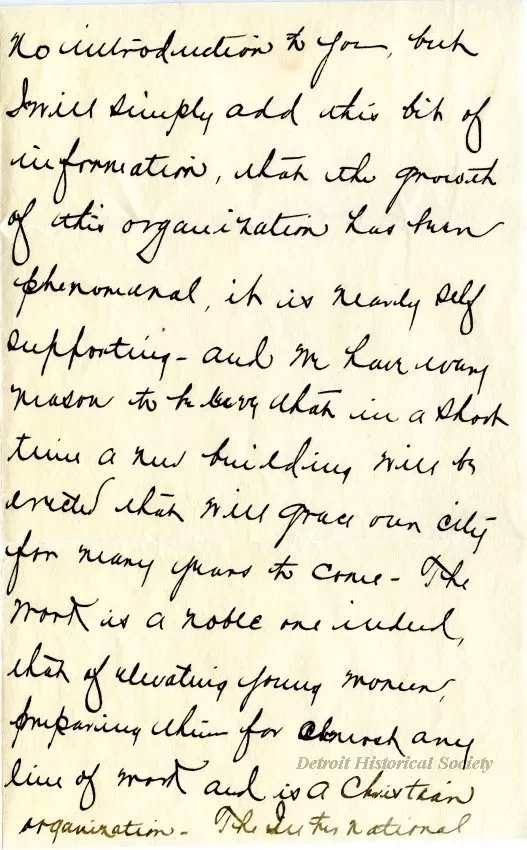 no introduction to you, but
I will simply add this bit of
information, that the growth
of this organization has been
phenomenal, it is nearly self
supporting - and we have every
reason to believe that in a short
time a new building will be
erected that will grace our city
for many years to come - The
work is a noble one indeed,
that of elevating young women,
preparing them for almost any
Detroit Historical Society
line of work and is a Christian
organization - The International